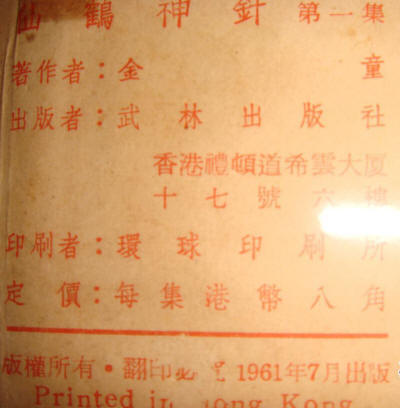 仙鶴神針 第一集
著作者：金童
出版者：武林出版社
香港禮頓道希雲大厦
十七號六樓
印刷者：環球印刷所
定價：每集港幣八角
版權所有・翻印必 1961年7月出版
Printed in Hong Kong